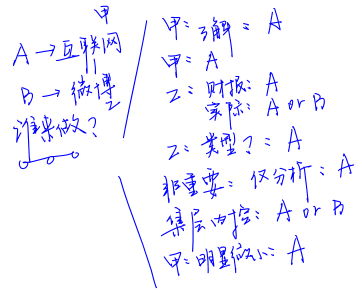 甲
A → 互联网
B → 微博
乙
谁来做?
甲: 了解 = A
甲 = A
乙: 财报: A
实际: A or B
乙: 类型? = A
非重要: 仅分析 = A
集层内控: A or B
甲: 明显缩小: A